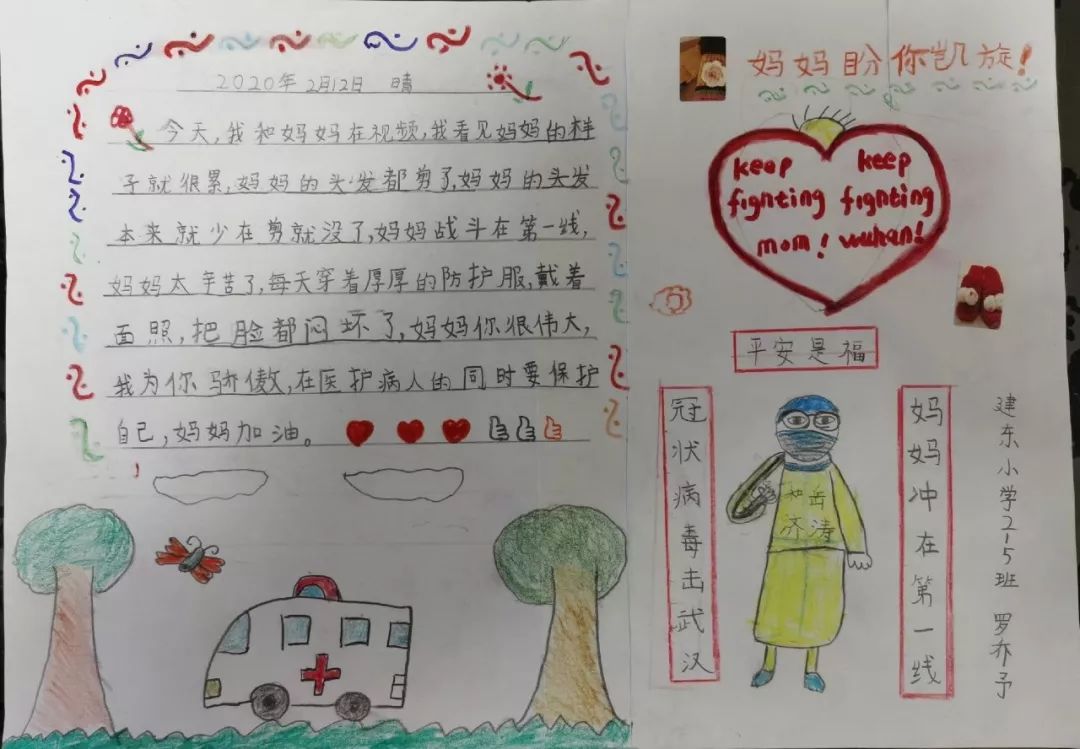 2020年 2月12日 晴
今天,我和妈妈在视频,我看见妈妈的样
子就很累,妈妈的头发都剪了,妈妈的头发
本来就少在剪就没了,妈妈战斗在第一线,
妈妈太辛苦了,每天穿着厚厚的防护服,戴着
面照,把脸都闷坏了,妈妈你很伟大,
我为你骄傲,在医护病人的同时要保护
自己,妈妈加油。
妈妈盼你凯旋!
keep
fignting
mom!
keep
fignting
wuhan!
平安是福
冠状病毒击武汉
济涛
妈妈冲在第一线
建东小学2-5班 罗乔予